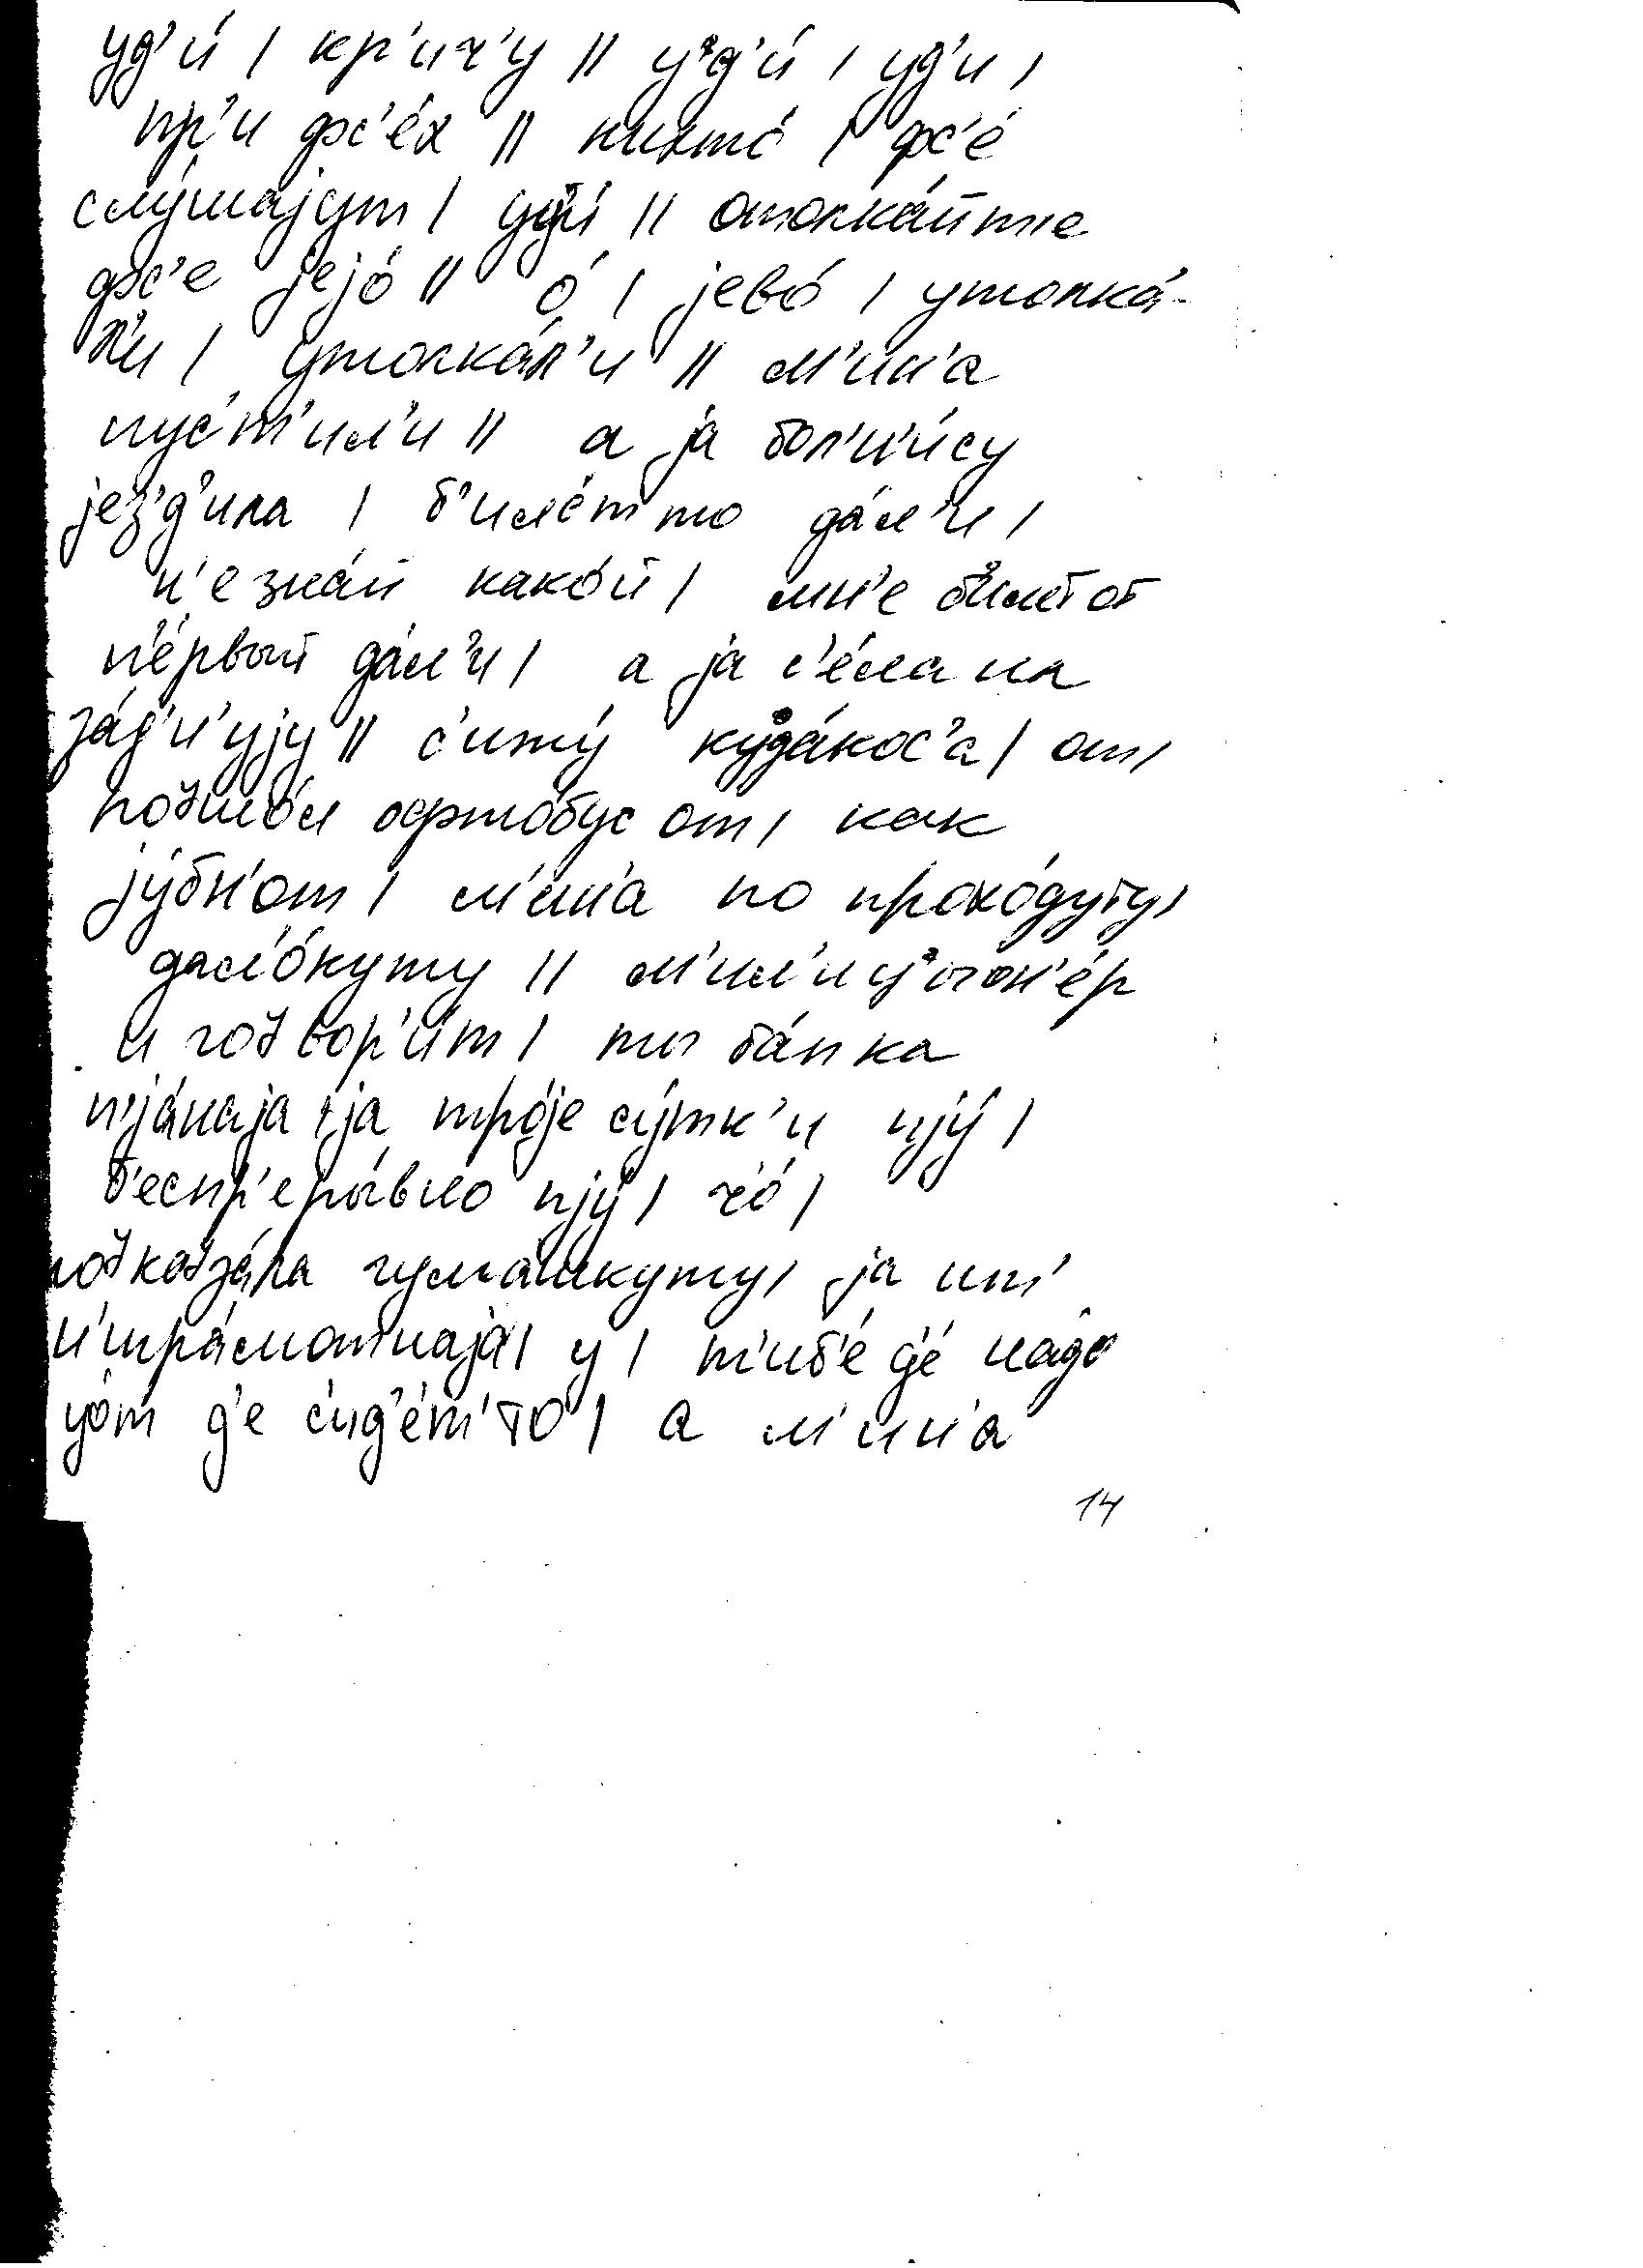 уд'и́ / кр'ич'у // уд'и́ / уд'и /
пр'и фс'е́х // никто́ / фс'е́
слу́шајут / уд'и́ // отолка́йт'е
фс'е јејо́ // о́ / јево́ / утолка́-
л'и / утолка́л'и // м'ин'а
пус'т'ил'и // а ја бол'н'и́су
јез'д'ила / б'иле́т то да́л'и /
н'е зна́й како́й / мн'е б'иле́т от
п'е́рвый да́л'и / а ја с'е́ла на
за́д'н'ују // с'ижу́ куда́кос'а / от /
пошо́л афто́бус от / как
јубн'о́т / м'ин'а по прохо́дуту /
дал'о́куту // м'ил'ицыон'е́р
и говор'и́т / ты ба́пка
п'ја́наја / ја тро́је су́тк'и пју́ /
б'еспр'еры́вно пју́ / ч'о́ /
показа́ла гума́шкуту / ја ит'
н'игра́мотнаја / у / т'иб'е́ д'е́ надо
во́т д'е с'ид'е́т' то / а м'ин'а
14